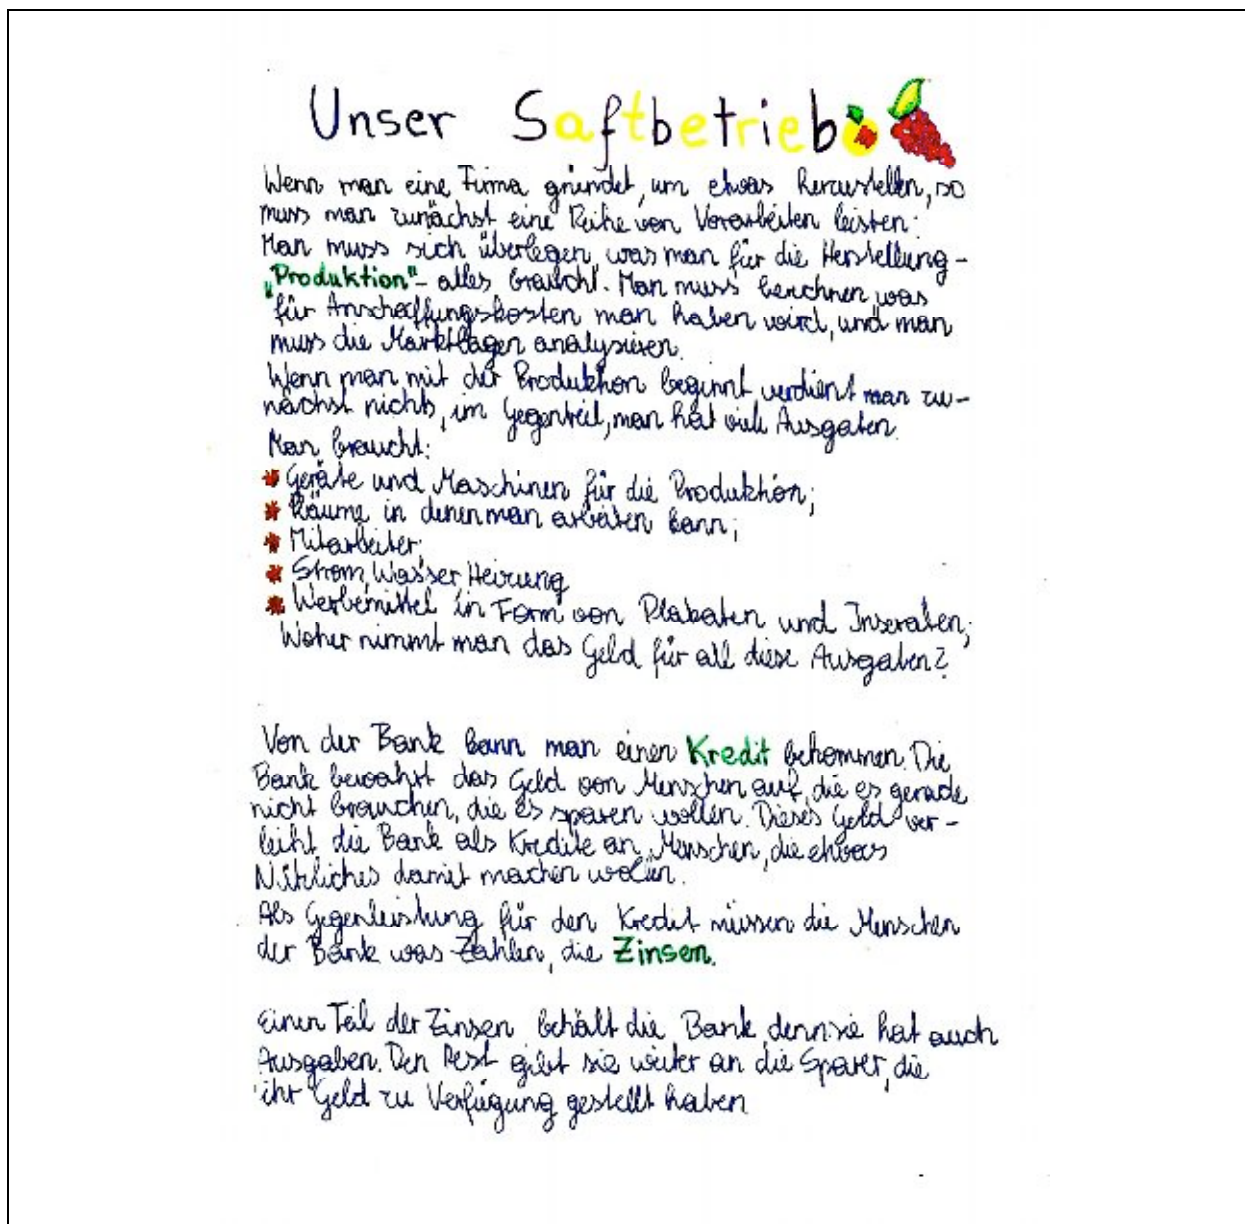 Unser Saftbetrieb
Wenn man eine Firma gründet, um etwas herzustellen, so
muss man zunächst eine Reihe von Vorarbeiten leisten:
Man muss sich überlegen, was man für die Herstellung –
„Produktion" – alles braucht. Man muss berechnen, was
für Anschaffungskosten man haben wird, und man
muss die Marktlagen analysieren.
Wenn man mit der Produktion beginnt, verdient man zu-
nächst nichts, im Gegenteil, man hat viele Ausgaben.
Man braucht:
* Geräte und Maschinen für die Produktion;
* Räume in denen man arbeiten kann;
* Mitarbeiter;
* Strom, Wasser, Heizung
* Werbemittel in Form von Plakaten und Inseraten;
Woher nimmt man das Geld für all diese Ausgaben?
Von der Bank kann man einen Kredit bekommen. Die
Bank bewahrt das Geld von Menschen auf, die es gerade
nicht brauchen, die es sparen wollen. Dieses Geld ver-
leiht die Bank als Kredite an Menschen, die etwas
Nützliches damit machen wollen.
Als Gegenleistung für den Kredit müssen die Menschen
der Bank was Zahlen, die Zinsen.
Einen Teil der Zinsen behält die Bank, denn sie hat auch
Ausgaben. Den Rest gibt sie weiter an die Sparer, die
ihr Geld zu Verfügung gestellt haben